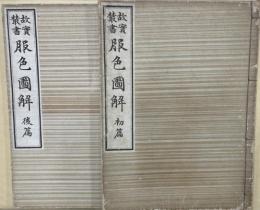 故實叢書 服色圖解 初篇
故實叢書 服色圖解 後篇